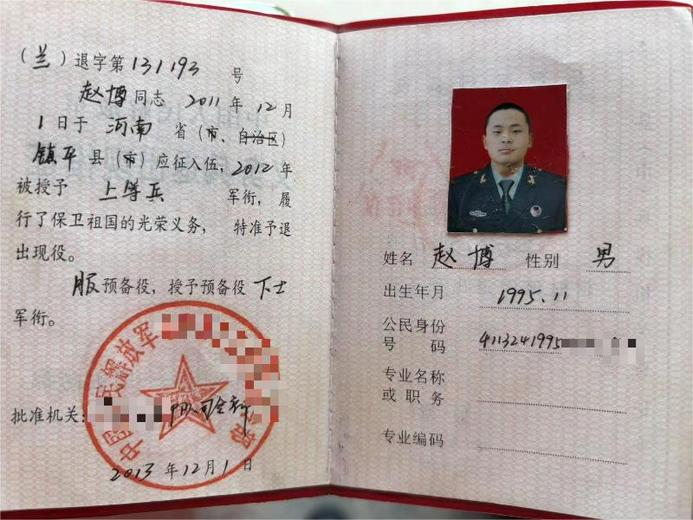 （兰）退字第131193号
赵博同志2011年12月
1日于河南省（市、自治区）
镇平县（市）应征入伍，2012年
被授予上等兵军衔，履
行了保卫祖国的光荣义务，特准予退
出现役。
服预备役，授予预备役下士
军衔。
中国人民解放军
批准机关：
2013年12月1日
姓名 赵博 性别 男
出生年月 1995.11
公民身份
号码 4113241995
专业名称
或职务
专业编码